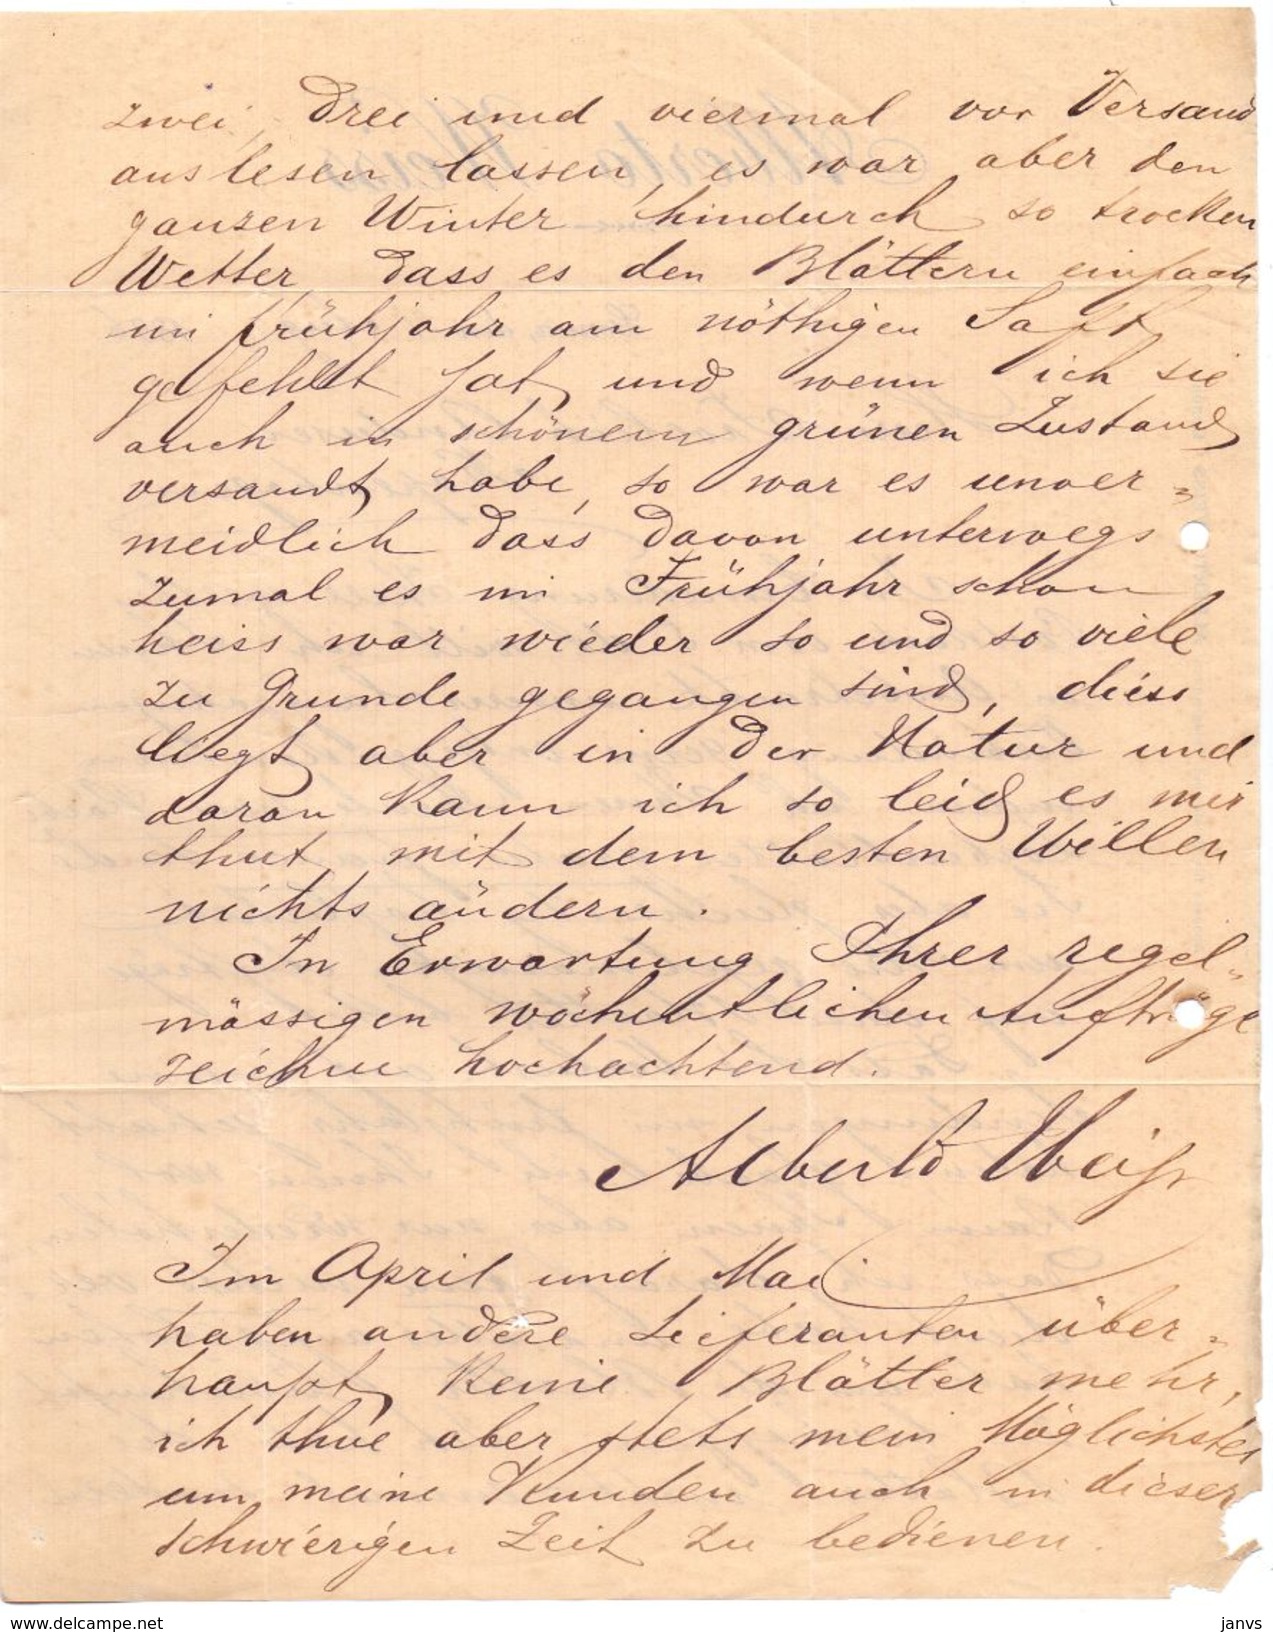 zwei, drei und viermal vor Versand
auslesen lassen, es war aber den
ganzen Winter hindurch so trocken
Wetter, dass es den Blättern einfach
im Frühjahr am nöthigen Saft
gefehlt hat, und wenn ich sie
auch in schönem grünen Zustand
versandt habe, so war es unver=
meidlich dass davon unterwegs
zumal es im Frühjahr schon
heiss war wieder so und so viele
zu Grunde gegangen sind, diess
liegt aber in der Natur und
daran kann ich so leid es mir
thut mit dem besten Willen
nichts ändern.
In Erwartung Ihrer regel=
mässigen wöchentlichen Aufträge
zeichne hochachtend.
Albert Weiß
Im April und Mai
haben andere Lieferanten über=
haupt keine Blätter mehr,
ich thue aber stets mein Möglichstes
um meine Kunden auch in dieser
schwierigen Zeit zu bedienen.
www.delcampe.net
janvs